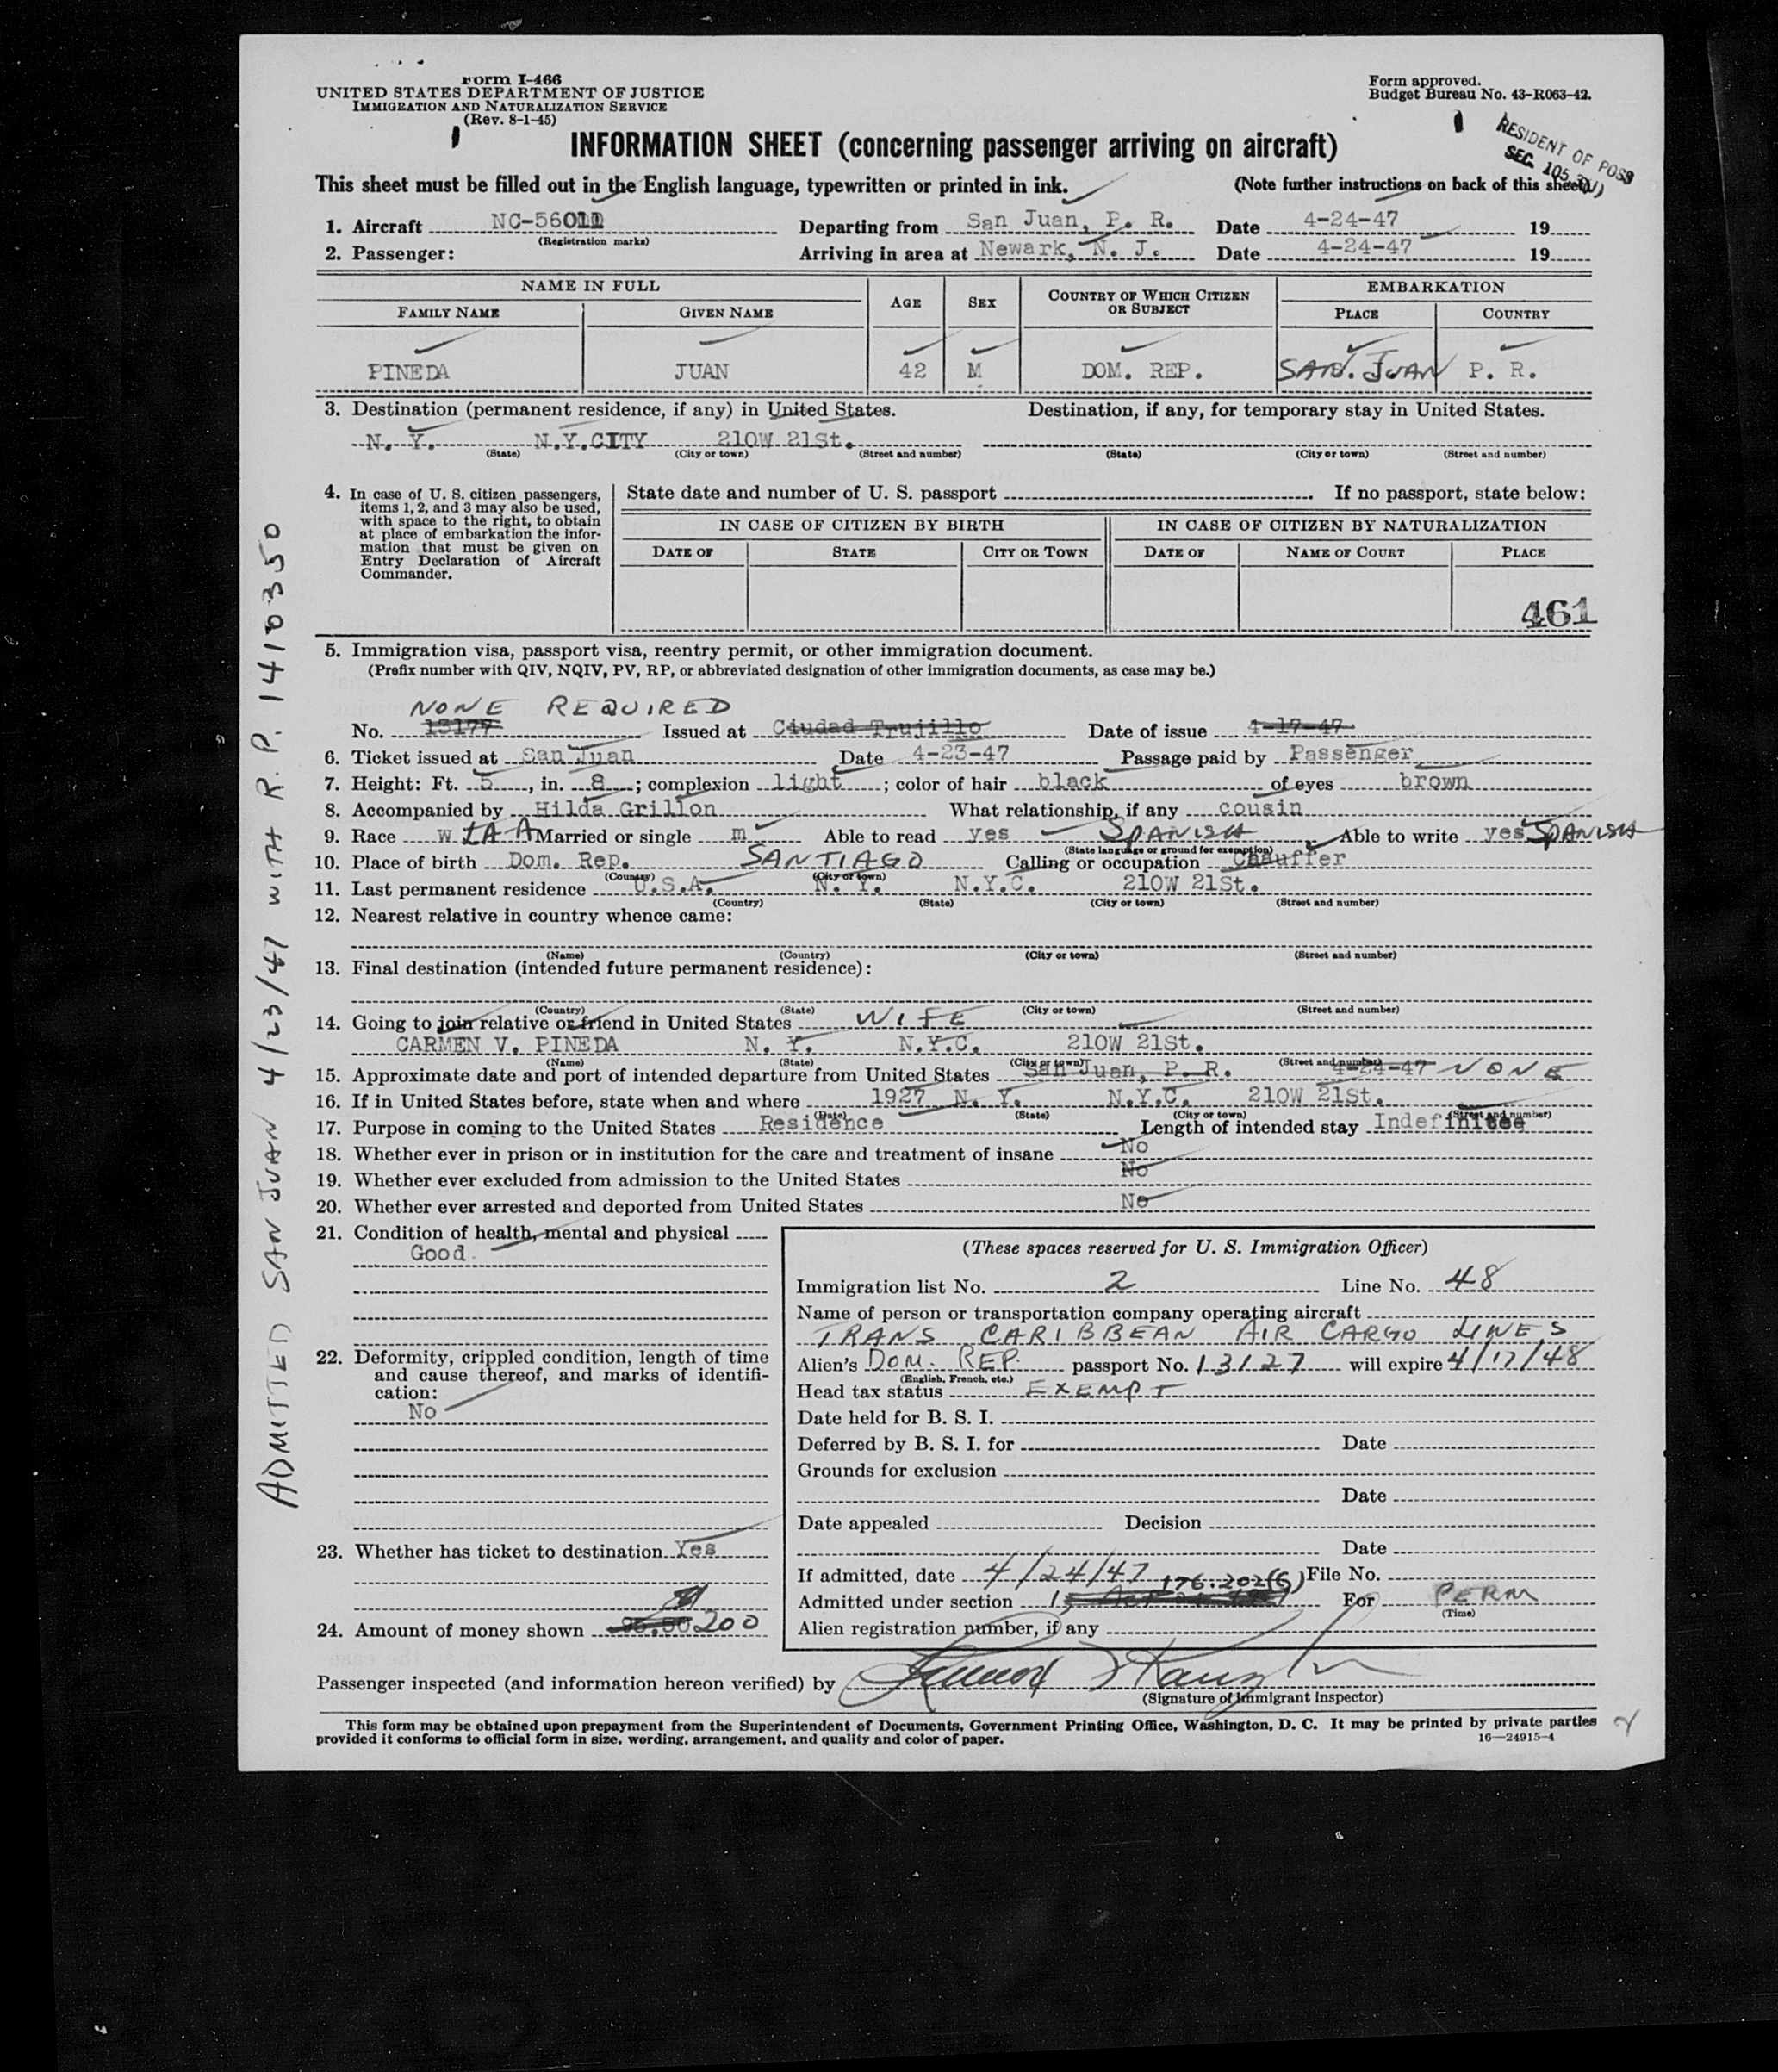 Form I-466
UNITED STATES DEPARTMENT OF JUSTICE
IMMIGRATION AND NATURALIZATION SERVICE
(Rev. 8-1-45)
Form approved.
Budget Bureau No. 43-R063-42.
RESIDENT OF POSS
SEC. 105.3(V)
INFORMATION SHEET (concerning passenger arriving on aircraft)
This sheet must be filled out in the English language, typewritten or printed in ink. (Note further instructions on back of this sheet.)
1. Aircraft NC-56011 Departing from San Juan, P. R. Date 4-24-47 19
(Registration marks)
2. Passenger: Arriving in area at Newark, N. J. Date 4-24-47 19
NAME IN FULL AGE SEX COUNTRY OF WHICH CITIZEN OR SUBJECT EMBARKATION
FAMILY NAME GIVEN NAME PLACE COUNTRY
PINEDA JUAN 42 M DOM. REP. SAN JUAN P. R.
3. Destination (permanent residence, if any) in United States. Destination, if any, for temporary stay in United States.
N. Y. N.Y.CITY 210W 21St.
(State) (City or town) (Street and number) (State) (City or town) (Street and number)
4. In case of U. S. citizen passengers, items 1, 2, and 3 may also be used, with space to the right, to obtain at place of embarkation the information that must be given on Entry Declaration of Aircraft Commander.
State date and number of U. S. passport If no passport, state below:
IN CASE OF CITIZEN BY BIRTH IN CASE OF CITIZEN BY NATURALIZATION
DATE OF STATE CITY OR TOWN DATE OF NAME OF COURT PLACE
461
5. Immigration visa, passport visa, reentry permit, or other immigration document.
(Prefix number with QIV, NQIV, PV, RP, or abbreviated designation of other immigration documents, as case may be.)
NONE REQUIRED
No. 13177 Issued at Ciudad Trujillo Date of issue 4-17-47
6. Ticket issued at San Juan Date 4-23-47 Passage paid by Passenger
7. Height: Ft. 5, in. 8; complexion light; color of hair black of eyes brown
8. Accompanied by Hilda Grillon What relationship, if any cousin
9. Race w LA A Married or single m Able to read yes SPANISH Able to write yes SPANISH
(State language or ground for exemption)
10. Place of birth Dom. Rep. SANTIAGO Calling or occupation Chauffer
(Country) (City or town)
11. Last permanent residence U.S.A. N. Y. N.Y.C. 210W 21St.
(Country) (State) (City or town) (Street and number)
12. Nearest relative in country whence came:
(Name) (Country) (City or town) (Street and number)
13. Final destination (intended future permanent residence):
(Country) (State) (City or town) (Street and number)
14. Going to join relative or friend in United States WIFE
CARMEN V. PINEDA N. Y. N.Y.C. 210W 21St.
(Name) (State) (City or town) (Street and number)
15. Approximate date and port of intended departure from United States San Juan, P. R. 4-24-47 NONE
16. If in United States before, state when and where 1927 N. Y. N.Y.C. 210W 21St.
(Date) (State) (City or town) (Street and number)
17. Purpose in coming to the United States Residence Length of intended stay Indefinitee
18. Whether ever in prison or in institution for the care and treatment of insane No
19. Whether ever excluded from admission to the United States No
20. Whether ever arrested and deported from United States No
21. Condition of health, mental and physical
Good
22. Deformity, crippled condition, length of time and cause thereof, and marks of identification:
No
23. Whether has ticket to destination Yes
24. Amount of money shown 200
(These spaces reserved for U. S. Immigration Officer)
Immigration list No. 2 Line No. 48
Name of person or transportation company operating aircraft
TRANS CARIBBEAN AIR CARGO LINES
Alien's DOM. REP. passport No. 13127 will expire 4/17/48
(English, French, etc.)
Head tax status EXEMPT
Date held for B. S. I.
Deferred by B. S. I. for Date
Grounds for exclusion
Date
Date appealed Decision
Date
If admitted, date 4/24/47 File No.
Admitted under section 176.202(G) For PERM
(Time)
Alien registration number, if any
Passenger inspected (and information hereon verified) by
(Signature of immigrant inspector)
This form may be obtained upon prepayment from the Superintendent of Documents, Government Printing Office, Washington, D. C. It may be printed by private parties
provided it conforms to official form in size, wording, arrangement, and quality and color of paper.
16—24915-4
ADMITTED SAN JUAN 4/23/47 WITH R.P. 1410350